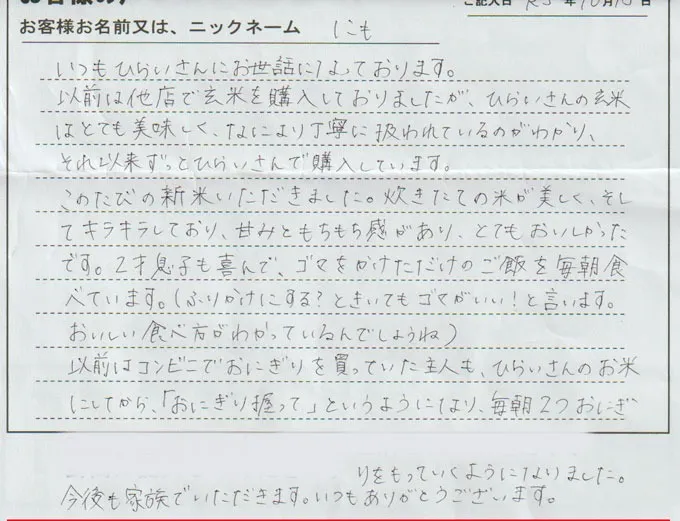 ご記入日 R5年10月10日
お客様お名前又は、ニックネーム にも
いつもひらいさんにお世話になっております。
以前は他店で玄米を購入しておりましたが、ひらいさんの玄米
はとても美味しく、なにより丁寧に扱われているのがわかり、
それ以来ずっとひらいさんで購入しています。
このたびの新米いただきました。炊きたての米が美しく、そし
てキラキラしており、甘みともちもち感があり、とてもおいしかった
です。2才息子も喜んで、ゴマをかけただけのご飯を毎朝食
べています。(ふりかけにする?ときいてもゴマがいい!と言います。
おいしい食べ方がわかっているんでしょうね)
以前はコンビニでおにぎりを買っていた主人も、ひらいさんのお米
にしてから、「おにぎり握って」というようになり、毎朝2つおにぎ
りをもっていくようになりました。
今後も家族でいただきます。いつもありがとうございます。